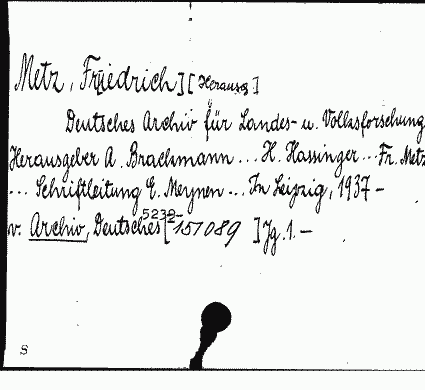 Metz, Fr[iedrich] [Herausg.]
Deutsches Archiv für Landes- u. Volksforschung
Herausgeber A. Brackmann ... H. Hassinger ... Fr. Metz
... Schriftleitung E. Meynen ... In Leipzig, 1937 -
v. Archiv, Deutsches [151089] Jg. 1. -
S